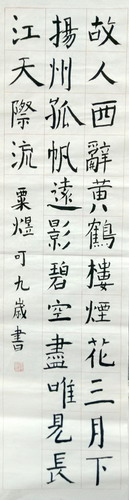 故人西辭黃鶴樓煙花三月下
揚州孤帆遠影碧空盡唯見長
江天際流 粟煜可九歲書